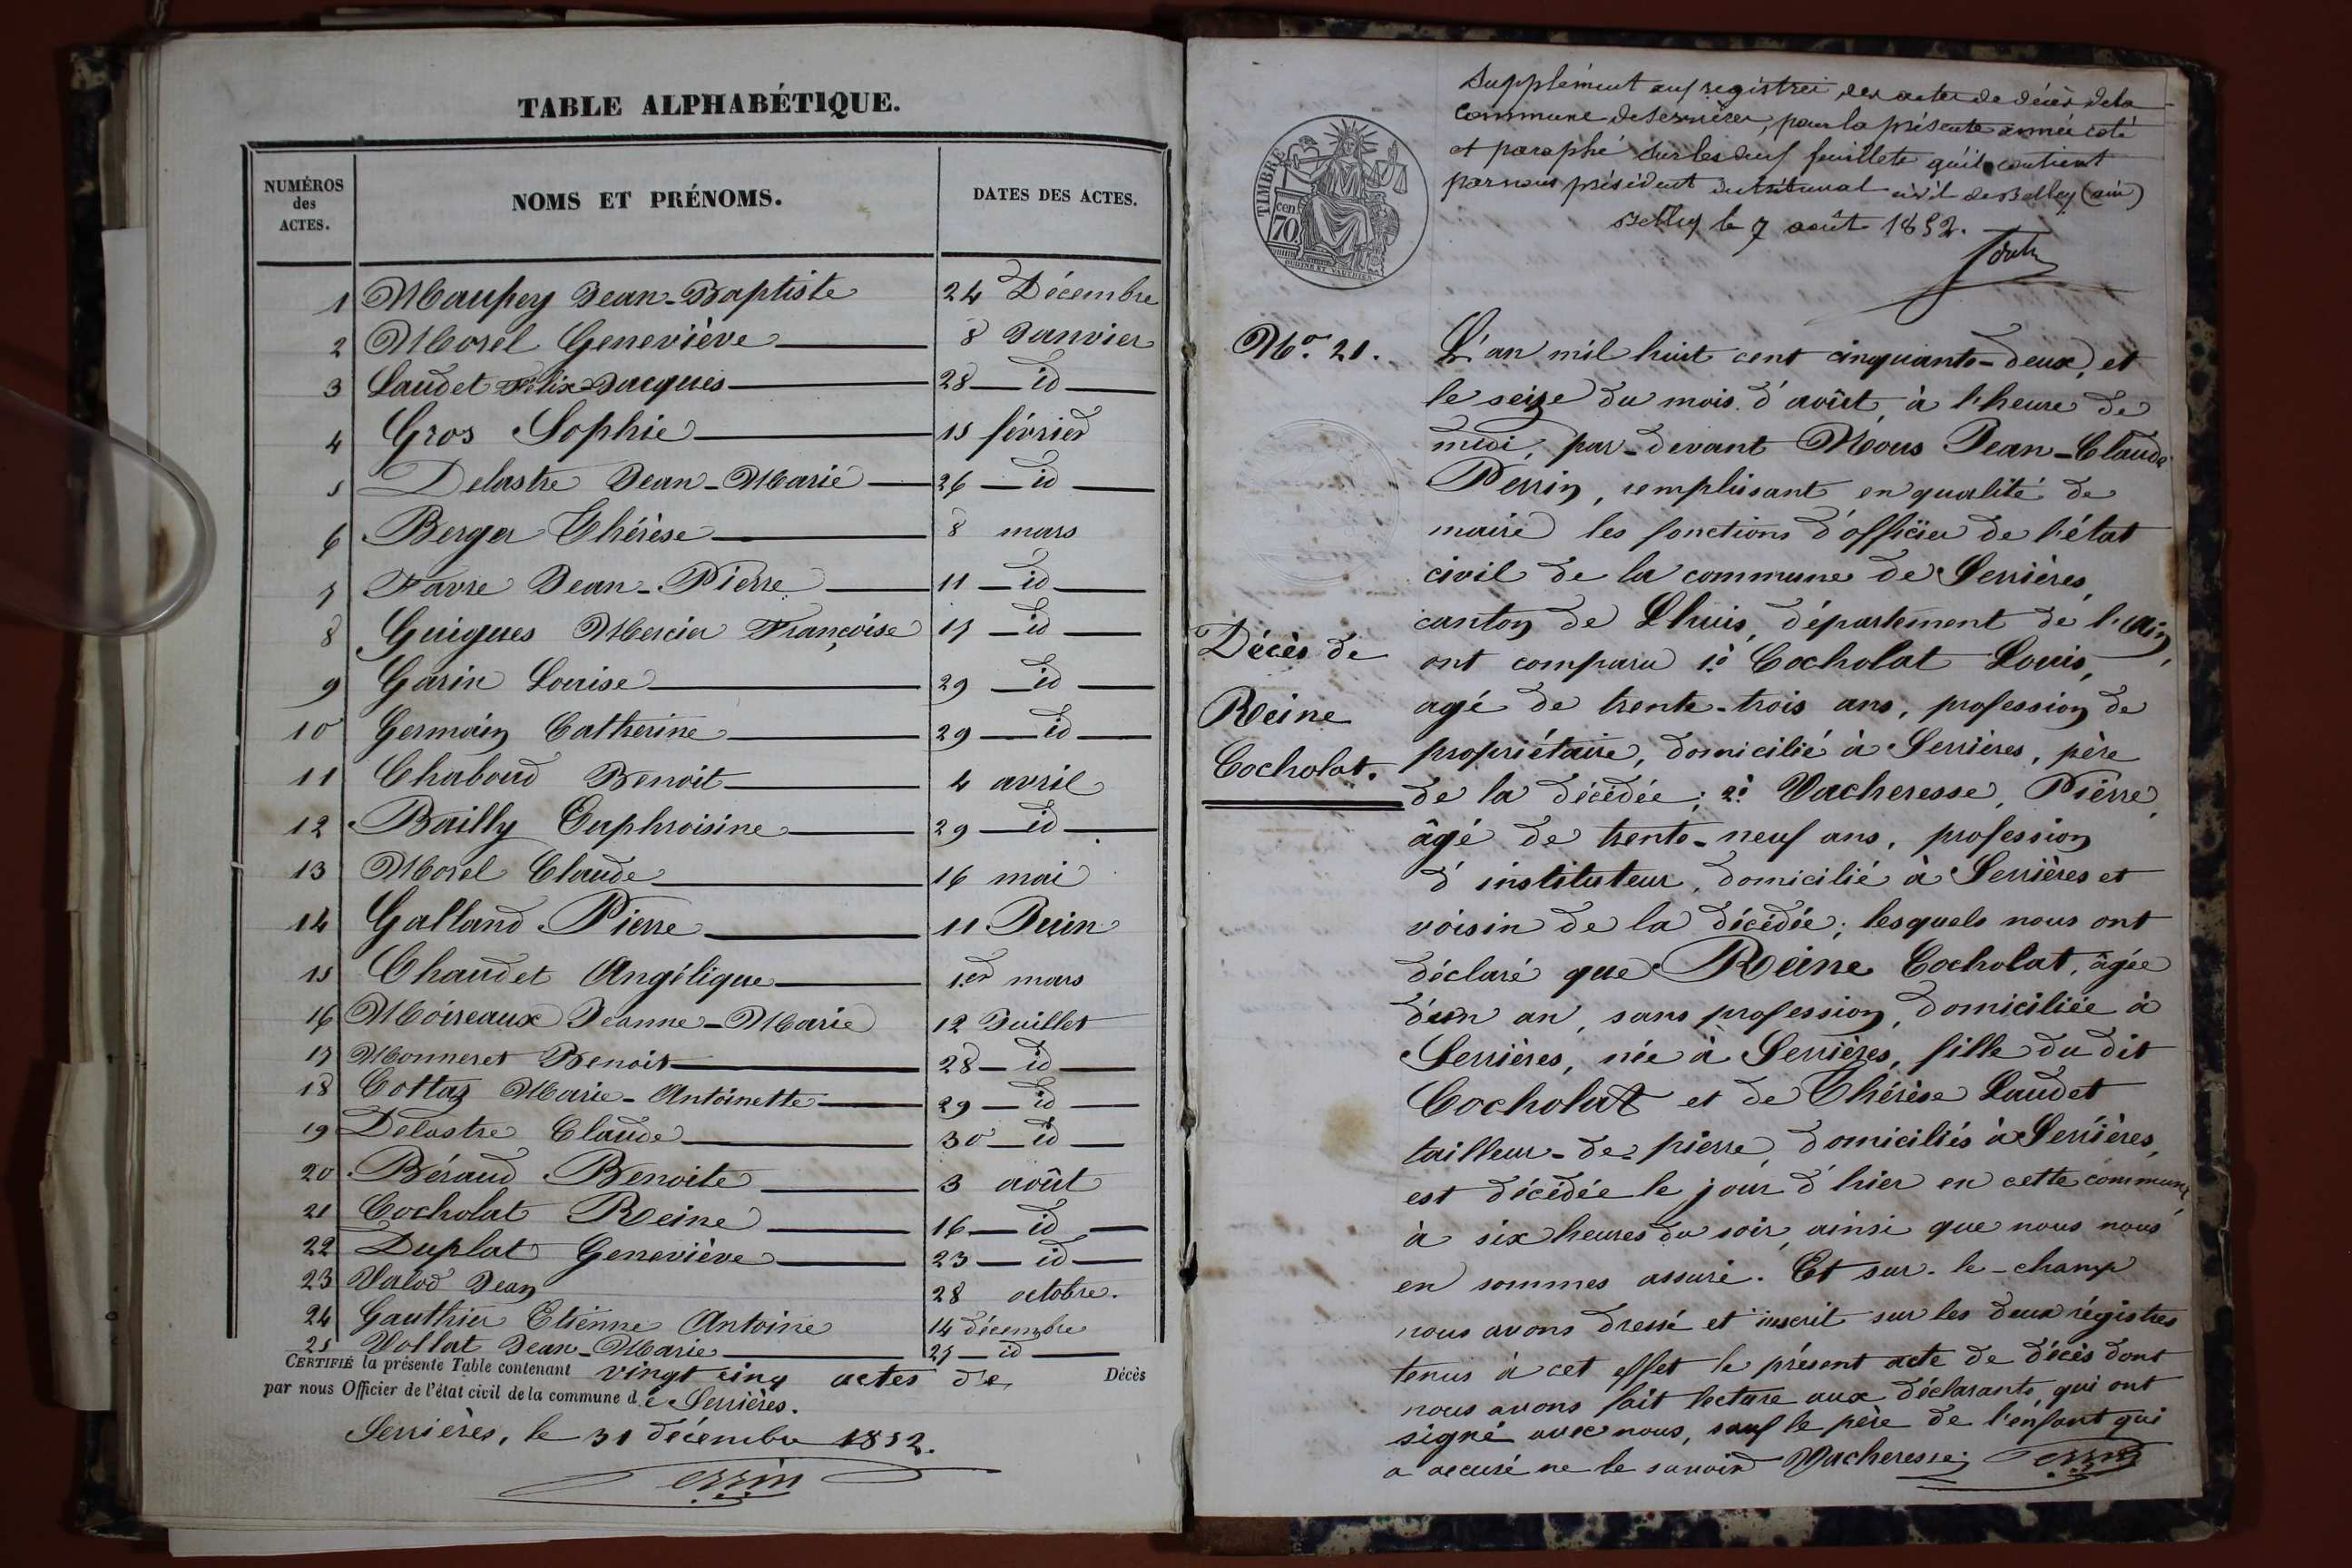 TABLE ALPHABÉTIQUE.
NUMÉROS des ACTES. NOMS ET PRÉNOMS. DATES DES ACTES.
1 Maupey Jean-Baptiste 24 Décembre
2 Morel Geneviève 8 Janvier
3 Laudet Félix-Jacques 28 id
4 Gros Sophie 15 février
5 Delastre Jean-Marie 26 id
6 Berger Thérèse 8 mars
7 Favre Jean-Pierre 11 id
8 Guigues Mercier Françoise 17 id
9 Garin Louise 29 id
10 Germain Catherine 29 id
11 Chaboud Benoit 4 avril
12 Bailly Euphroisine 29 id
13 Morel Claude 16 mai
14 Galland Pierre 11 Juin
15 Chaudet Angélique 1er mars
16 Moireaux Jeanne-Marie 12 Juillet
17 Monneret Benoit 28 id
18 Cottaz Marie-Antoinette 29 id
19 Delastre Claude 30 id
20 Béraud Benoite 3 août
21 Cocholat Reine 16 id
22 Duplat Geneviève 23 id
23 Valod Jean 28 octobre.
24 Gauthier Etienne Antoine 14 décembre
25 Vollat Jean-Marie 27 id
CERTIFIÉ la présente Table contenant vingt cinq actes de Décès
par nous Officier de l'état civil de la commune de Serrières.
Serrières, le 31 décembre 1852.
Perrin
Supplément aux registres des actes de décès de la
commune de Serrières, pour la présente année coté
et paraphé sur les deux feuillets qu'il contient
par nous président du tribunal civil de Belley (ain)
Belley le 7 août 1852.
TIMBRE
70 cen.
OUDINE ET VAUTHIER
No. 21.
Décès de
Reine
Cocholat.
L'an mil huit cent cinquante-deux, et
le seize du mois d'août, à l'heure de
midi, par-devant Nous Jean-Claude
Perrin, remplissant en qualité de
maire les fonctions d'officier de l'état
civil de la commune de Serrières,
canton de Lhuis, département de l'Ain,
ont comparu 1o Cocholat Louis,
agé de trente-trois ans, profession de
propriétaire, domicilié à Serrières, père
de la décédée; 2o Vacheresse, Pierre,
âgé de trente-neuf ans, profession
d'instituteur, domicilié à Serrières et
voisin de la décédée; lesquels nous ont
déclaré que Reine Cocholat, âgée
d'un an, sans profession, domiciliée à
Serrières, née à Serrières, fille du dit
Cocholat et de Thérèse Laudet
tailleur-de-pierre, domiciliés à Serrières,
est décédée le jour d'hier en cette commune,
à six heures du soir, ainsi que nous nous
en sommes assuré. Et sur-le-champ
nous avons dressé et inscrit sur les deux régistres
tenus à cet effet le présent acte de décès dont
nous avons fait lecture aux déclarants, qui ont
signé avec nous, sauf le père de l'enfant qui
a accusé ne le savoir Vacheresse Perrin